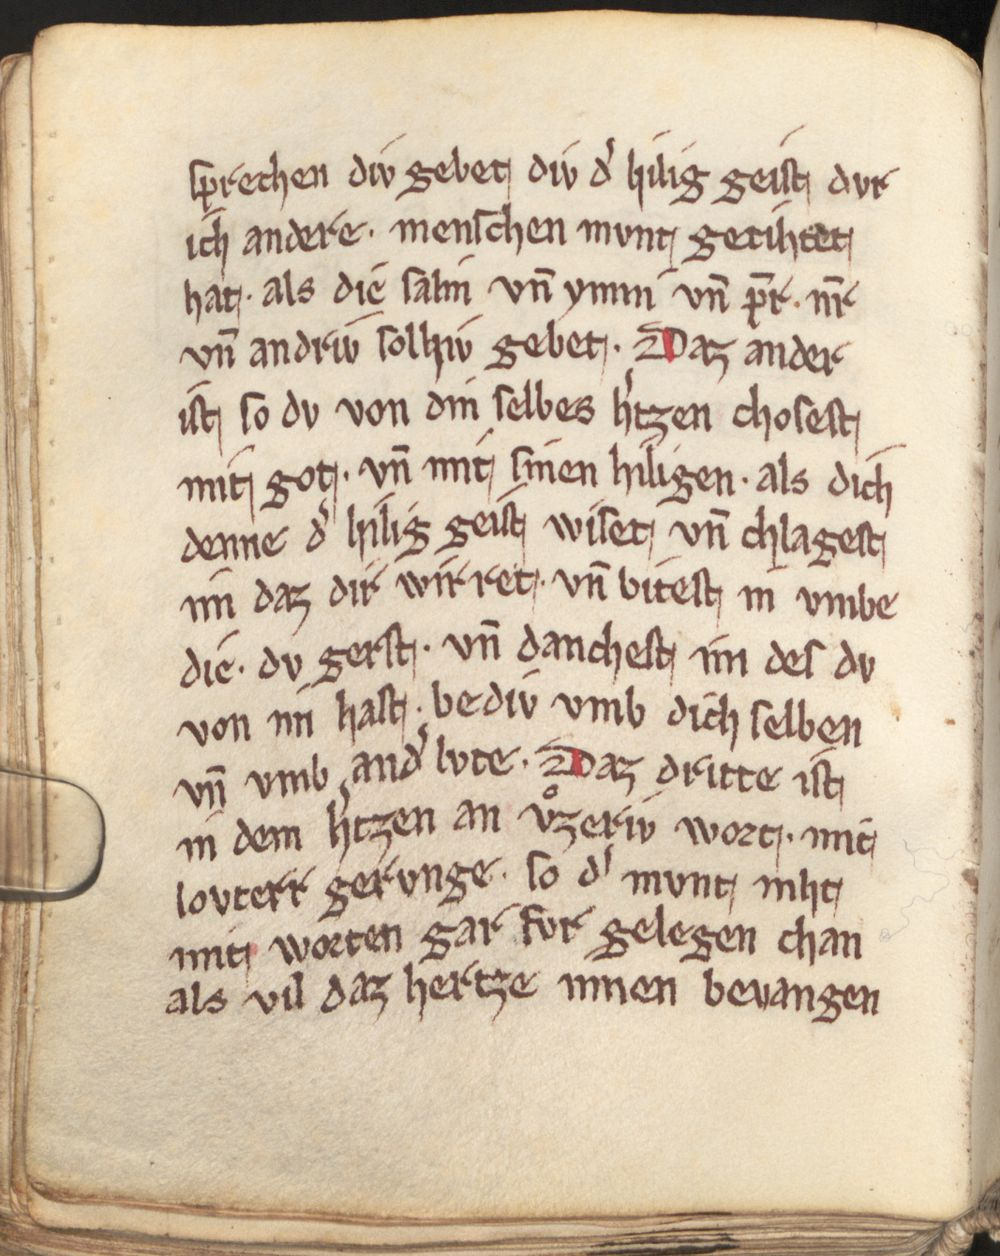 sprechen div gebet div d͛ hilig geist dvr
ich andere · menschen mvnt getihtet
hat · als die salm vn̄ ymni vn̄ pr̄ · nr̄
vn̄ andriv solhiv gebet · Daz ander
ist so dv von din selbes h͛tzen chosest
mit got · vn̄ mit sinen hiligen · als dich
denne d͛ hilig geist wiset vn̄ chlagest
im daz dir wirret · vn̄ bitest in vmbe
die · dv gerst · vn̄ danchest im des dv
von im hast · bediv vmb dich selben
vn̄ vmb and͛ lvte · Daz dritte ist
in dem h͛tzen an vͦzeriv wort · mit
lovterr gervnge · so d͛ mvnt niht
mit worten gar fvr gelegen chan
als vil daz hertze innen bevangen